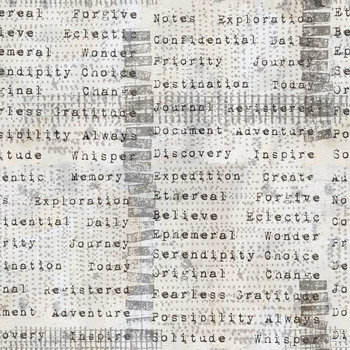 ereal Forgive
ieve Eclectic
emeral Wonder
endipity Choice
ginal Change
rless Gratitude
sibility Always
itude Whisper
etic Memory
s Exploration
dential Daily
rity Journey
ination Today
nal Registered
ment Adventure
overy Inspire
Notes Exploration
Confidential Daily
Priority Journey
Destination Today
Journal Registered
Document Adventure
Discovery Inspire
Expedition Create
Ethereal Forgive
Believe Eclectic
Ephemeral Wonder
Serendipity Choice
Original Change
Fearless Gratitude
Possibility Always
Solitude Whisper